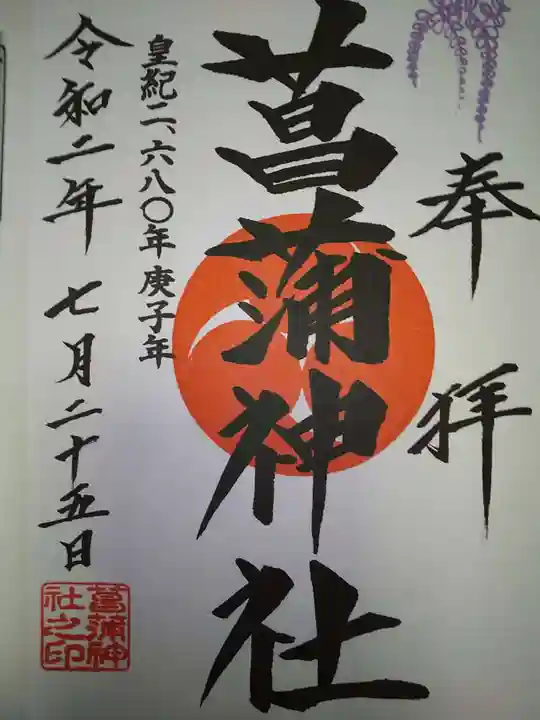 奉拝
菖蒲神社
皇紀二、六八〇年庚子年
令和二年七月二十五日
菖蒲神
社之印